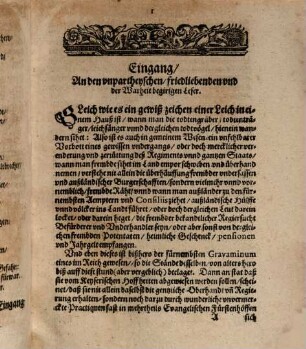 1
Eingang/
An den vnpartheyschen/ friedliebenden vnd
der Warheit begirigen Leser.
GLeich wie es ein gewiß zeichen einer Leich in ei-
nem Hauß ist/ wann man die
vnd dergleichen todvögel/
dern sihet: Also ist es auch in gemeinem Wesen ein vnfehlbarer
Vorbott eines gewissen vndergangs/ oder doch mercklicher ver-
enderung vnd des Regiments vnd gantzen Staats/
wann man frembde sitten im Land empor schweben vnd vberhand
nemen/ verstehe nit allein die vberhäuffung frembder vndersassen
vnd außländischer Burgerschafften/ sondern vielmehr wo vor-
nemblich/ frembde Räht/ wann man außländer zu den für-
nembsten Aemptern vnd Consiliis ziehet/ außländische Hülffe
vnd völcker ins Landt führet/ oder doch dergleichen End darin-
nen/ oder daran bieget/ die frembder benandlicher Regiersucht
Befürderer vnd Vnderhandler seyn/ oder aber sonst von derglei-
chen frembden Potentaten/ heimliche Geschenck/ pensionen
vnd Jahrgelt empfangen.
Vnd eben dieses ist bißhero der fürnembsten Gravaminum
eines im Reich gewesen/ so die Stände desselben/ von alters hero
biß auff diese stund (aber vergeblich) beklaget. Dann an stat daß
sie vom Keyserischen Hoff hetten abgewiesen werden sollen/ schei-
net/ daß sie nit allein daselbst die gentzliche Oberhandt vnd Regie-
rung erhalten/ sondern noch darzu durch wunderlich vnvermer-
ckte Practiquen fast in mehrtheils Evangelischen Fürstenhöffen
A sich
Eingang